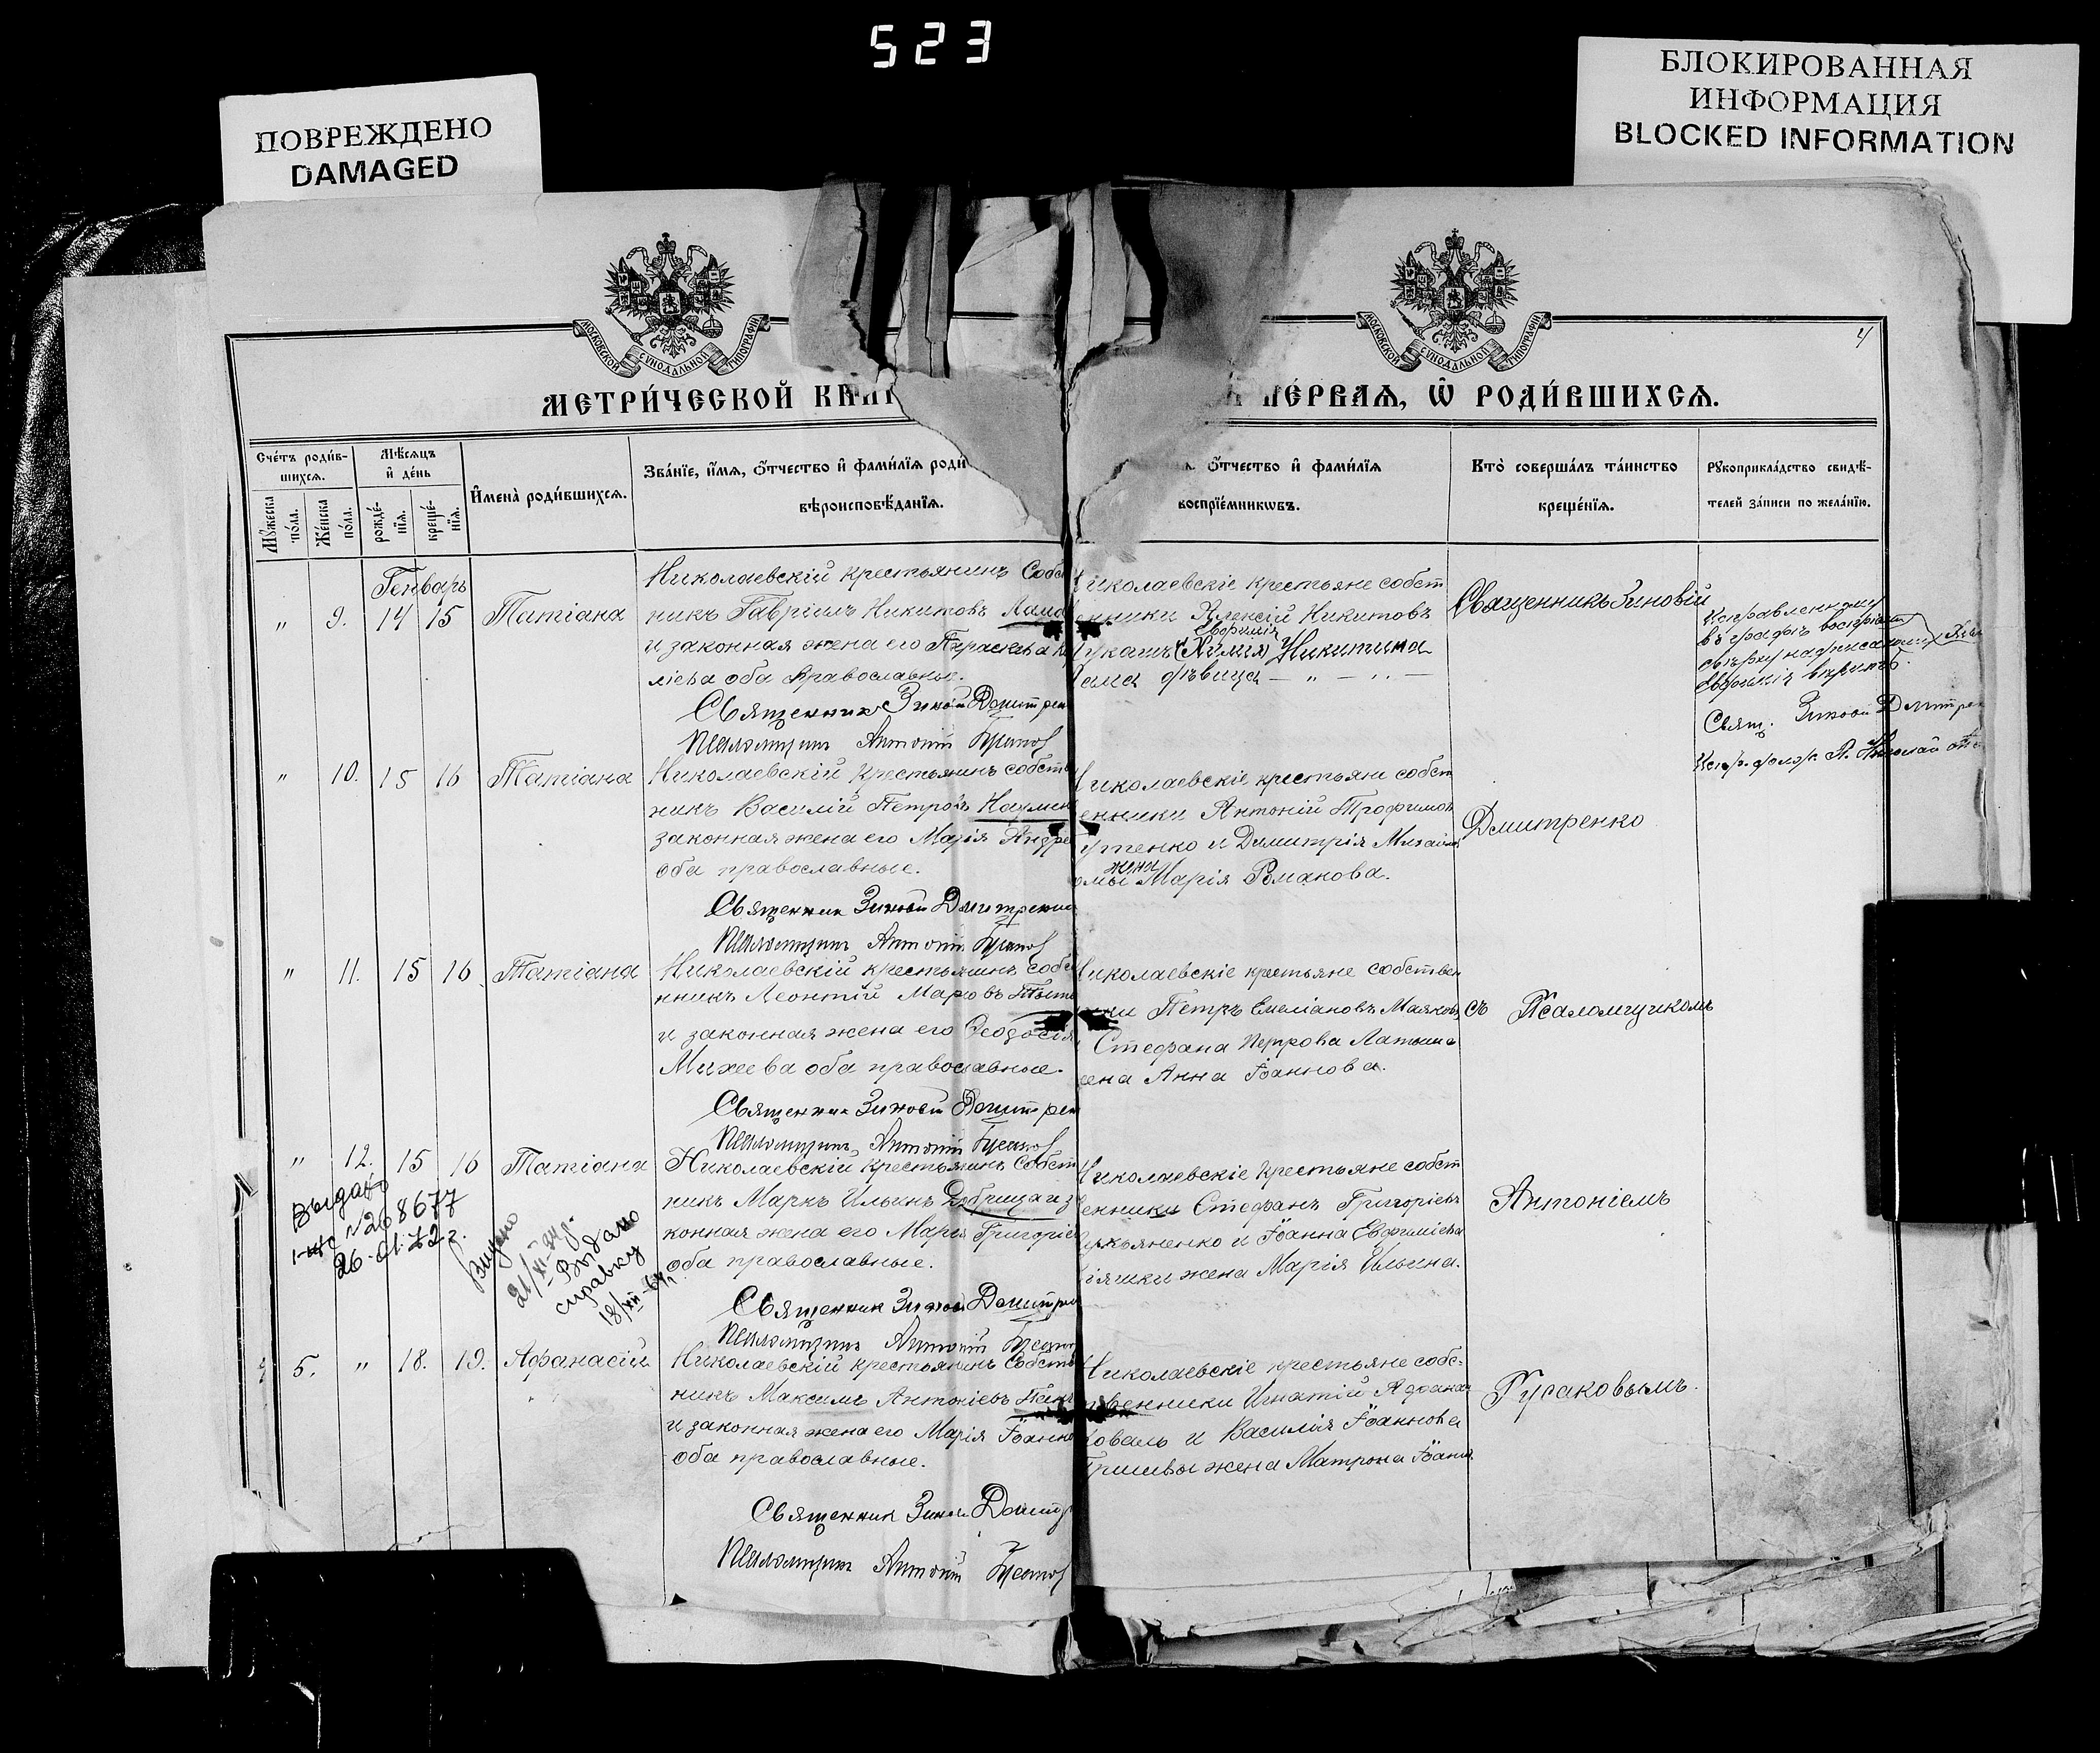 523
ПОВРЕЖДЕНО
DAMAGED
БЛОКИРОВАННАЯ
ИНФОРМАЦИЯ
BLOCKED INFORMATION
МОСКОВСКОЙ СѴНОДАЛЬНОЙ ТИПОГРАФІИ
МОСКОВСКОЙ СѴНОДАЛЬНОЙ ТИПОГРАФІИ
4
МЕТРИ́ЧЕСКОЙ КНИГ
ПЕ́РВАѦ, Ѡ҆ РОДИ́ВШИХСѦ.
Сче́тъ роди́в-
шихсѧ.
Мꙋ́жеска
по́ла.
Же́нска
по́ла.
Мѣ́сѧцъ
и҆ де́нь
рожде́-
нїѧ.
креще́-
нїѧ.
И҆мена̀ роди́вшихсѧ.
Зва́нїе, и҆́мѧ, ѻ҆́тчество и҆ фами́лїѧ роди
вѣроисповѣ́данїѧ.
ѻ҆́тчество и҆ фами́лїѧ
воспрїе́мникѡвъ.
Кто̀ соверша́лъ та́инство
креще́нїѧ.
Рꙋкоприкла́дство свидѣ́-
телей за́писи по жела́нїю.
Генварь
" 9. 14 15 Татіана
Николаевскій крестьянинъ Собс
никъ Гавріилъ Никитовъ
и законная жена его Параскева
ліева оба православные.
Священникъ Зиновій Дмитрен
Псаломщикъ Антоній
иколаевскіе крестьяне собст
нники Алексій Никитовъ
Евфимія
Никитина
дѣвица — " — " —
Священникъ Зиновій
въ графѣ
Свящ. Зиновій Дмитре
" 10. 15 16 Татіана
Николаевскій крестьянинъ собств
никъ Василій Петровъ
законная жена его Марія Андре
оба православные.
Священник Зиновій Дмитренко
Псаломщикъ Антоній
иколаевскіе крестьяне собст
енники Антоній Трофимов
утенко и Димитрія Михаил
жена
омы Марія Романова.
Дмитренко
" 11. 15 16 Татіана
Николаевскій крестьянинъ собс
нникъ Леонтій Марковъ
и законная жена его Ѳеодосія
Михеева оба православные.
Священник Зиновій Дмитрен
Псаломщикъ Антоній
иколаевскіе крестьяне собствен
ики Петръ Емеліановъ Маяков
Стефана Петрова
ена Анна Іоаннова.
съ Псаломщикомъ
" 12. 15 16 Татіана
Николаевскій крестьянинъ Собст
никъ Маркъ Ильинъ Добрица и з
конная жена его Марія Григоріе
оба православные.
Священник Зиновій Дмитре
Псаломщикъ Антоній
иколаевскіе крестьяне собст
енники Стефанъ Григоріевъ
укьяненко и Іоанна Евфиміева
іяшки жена Марія Ильина.
Антоніемъ
Выдано
№ 268677
Выдано
справку
5. " 18. 19. Аѳанасій
Николаевскій крестьянинъ Собств
никъ Максимъ Антоніевъ
и законная жена его Марія Іоанно
оба православные.
Священник Зиновій Дмитр
Псаломщикъ Антоній
иколаевскіе крестьяне собс-
твенники Игнатій Аѳанас
Коваль и Василія Іоаннова
Гришевы жена Матрона Іоанн
Гусаковымъ.